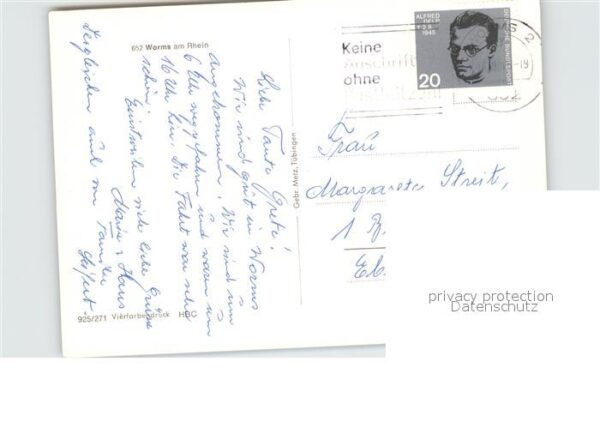 652 Worms am Rhein
Liebe Tante Grete!
Wir sind gut in Worms
angekommen. Wir sind um
6 Uhr weggefahren und waren um
16 Uhr hier. Die Fahrt war sehr
schön.
Einstweilen viele liebe Grüße
Marie + Hans
Desgleichen auch von Familie
Seifert.
925/271 Vierfarbendruck HBC
Gebr. Metz, Tübingen
Keine
Anschrift
ohne
Postleitzahl
ALFRED
DELP
† 2.2.
1945
20
DEUTSCHE BUNDESPOST
2
-19
Frau
Margarete Streit,
1 B
privacy protection
Datenschutz